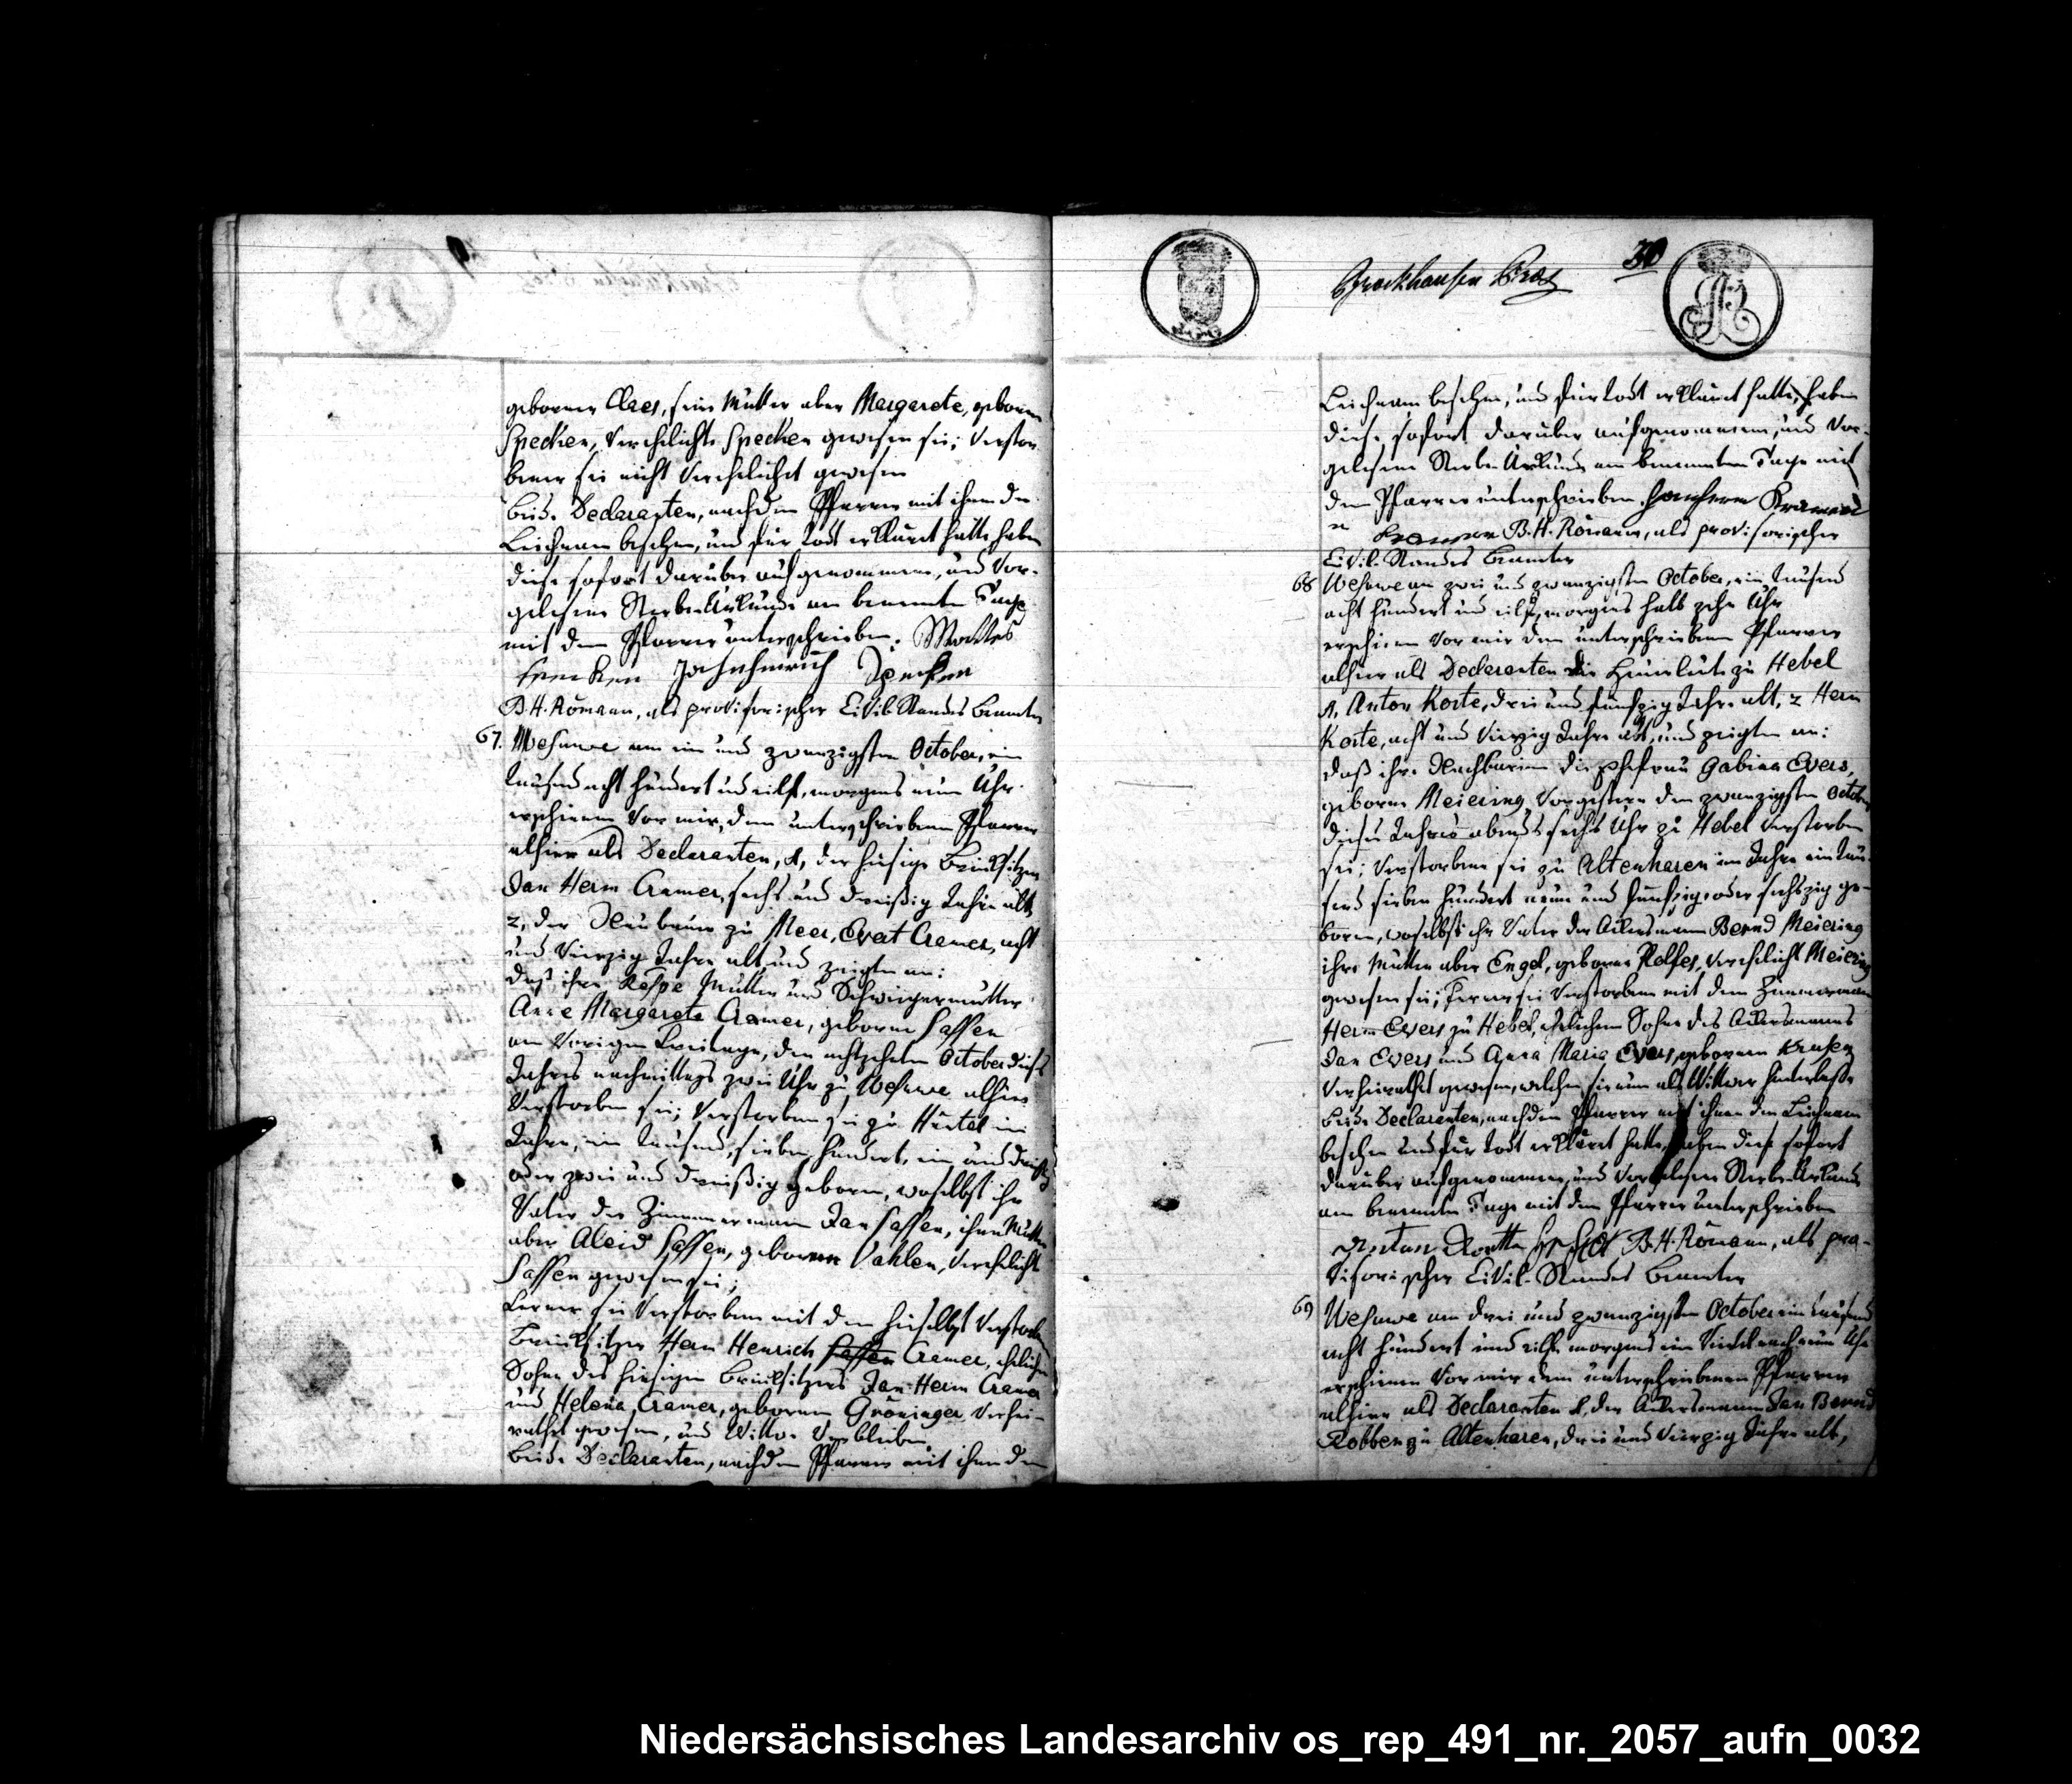 geborner Claes, seine Mutter aber Margarete, geborne
Specken, verehlichte Specken gewesen sei; Verstor-
bener sei nicht verehlicht gewesen
Beide Declaranten, nachdem Pfarrer mit ihnen den
Leichnam besehen, und für todt erklärt hatte, haben
diese sofort darüber aufgenommene, und vor-
gelesene Sterbe-Urkunde am benannten Tage
mit dem Pfarrer unterschrieben.
Specken
B. H. Römann, als provisorischer Civil-Standes Beamter
67. Wesuwe am ein und zwanzigsten October, ein
tausend acht hundert und eilf, morgens neun Uhr
erschienen vor mir, dem unterschriebenen Pfarrer
alhier als Declaranten, 1, der hiesige Brinksitzer
Jan Herm Cramer, sechs und dreißig Jahre alt,
2, der Neubauer zu Meer, Evert Cramer, acht
und vierzig Jahre alt, und zeigten an:
daß ihre Respe Mutter und Schwiegermutter
Anne Margarete Cramer, geborne Sassen
am vorigen Freitage, den achtzehnten October dieses
Jahres nachmittags zwei Uhr zu Wesuwe alhier
verstorben sei; Verstorbene sei zu Hüntel im
Jahre, ein tausend, sieben hundert, ein und dreißig
oder zwei und dreißig geboren, woselbst ihr
Vater der Zimmermann Jan Sassen, ihre Mutter
aber Aleid Sassen, geborne Vahlen, verehlicht
Sassen gewesen sei;
Ferner sei Verstorbene mit dem hieselbst verstorbe
Brinksitzer Herm Henrich Sassen Cramer, ehelichen
Sohne des hiesigen Brinksitzers Jan Herm Cramer
und Helena Cramer, geborne Gröninger verhei-
rathet gewesen, und Wittwe verblieben
Beide Declaranten, nachdem Pfarrer mit ihnen den
Brockhausen
30
Leichnam besehen, und für todt erklärt hatte, haben
diese sofort darüber aufgenommene, und vor-
gelesene Sterbe-Urkunde am benannten Tage mit
dem Pfarrer unterschrieben
B. H. Römann, als provisorischer
Civil-Standes Beamter
68 Wesuwe am zwei und zwanzigsten October, ein tausend
acht hundert und eilf, morgens halb zehn Uhr
erschienen vor mir dem unterschriebenen Pfarrer
alhier als Declaranten die Heuerleute zu Hebel
1, Anton Korte, drei und fünfzig Jahre alt, 2 Herm
Korte, acht und vierzig Jahre alt, und zeigten an:
daß ihre Nachbarinn die Ehefrau Gabina Evers,
geborne Meiering vorgestern den zwanzigsten October
dieses Jahres abends sechs Uhr zu Hebel verstorben
sei; Verstorbene sei zu Altenharen im Jahre ein tau-
send sieben hundert neun und fünfzig oder sechszig ge-
boren, woselbst ihr Vater der Ackersmann Bernd Meiering
ihre Mutter aber Engel, geborne Rolfes, verehlicht Meiering
gewesen sei; Ferner sei Verstorbene mit dem Zimmermann
Herm Evers zu Hebel, ehelichem Sohne des Ackersmanns
Jan Evers und Anna Maria Evers, geborne Krusen
verheirathet gewesen, welchen sie nun als Wittwer hinterlasse
Beide Declaranten, nachdem Pfarrer mit ihnen den Leichnam
besehen und für todt erklärt hatte, haben diese sofort
darüber aufgenommene, und vorgelesene Sterbe-Urkunde
am benannten Tage mit dem Pfarrer unterschrieben
B. H. Römann, als pro-
visorischer Civil-Standes Beamter
69 Wesuwe am drei und zwanzigsten October ein tausend
acht hundert und eilf, morgens ein Viertel nach neun Uhr
erschienen vor mir dem unterschriebenen Pfarrer
alhier als Declaranten 1, der Ackersmann Jan Bernd
Robben zu Altenharen, drei und vierzig Jahre alt,
Niedersächsisches Landesarchiv os_rep_491_nr._2057_aufn_0032